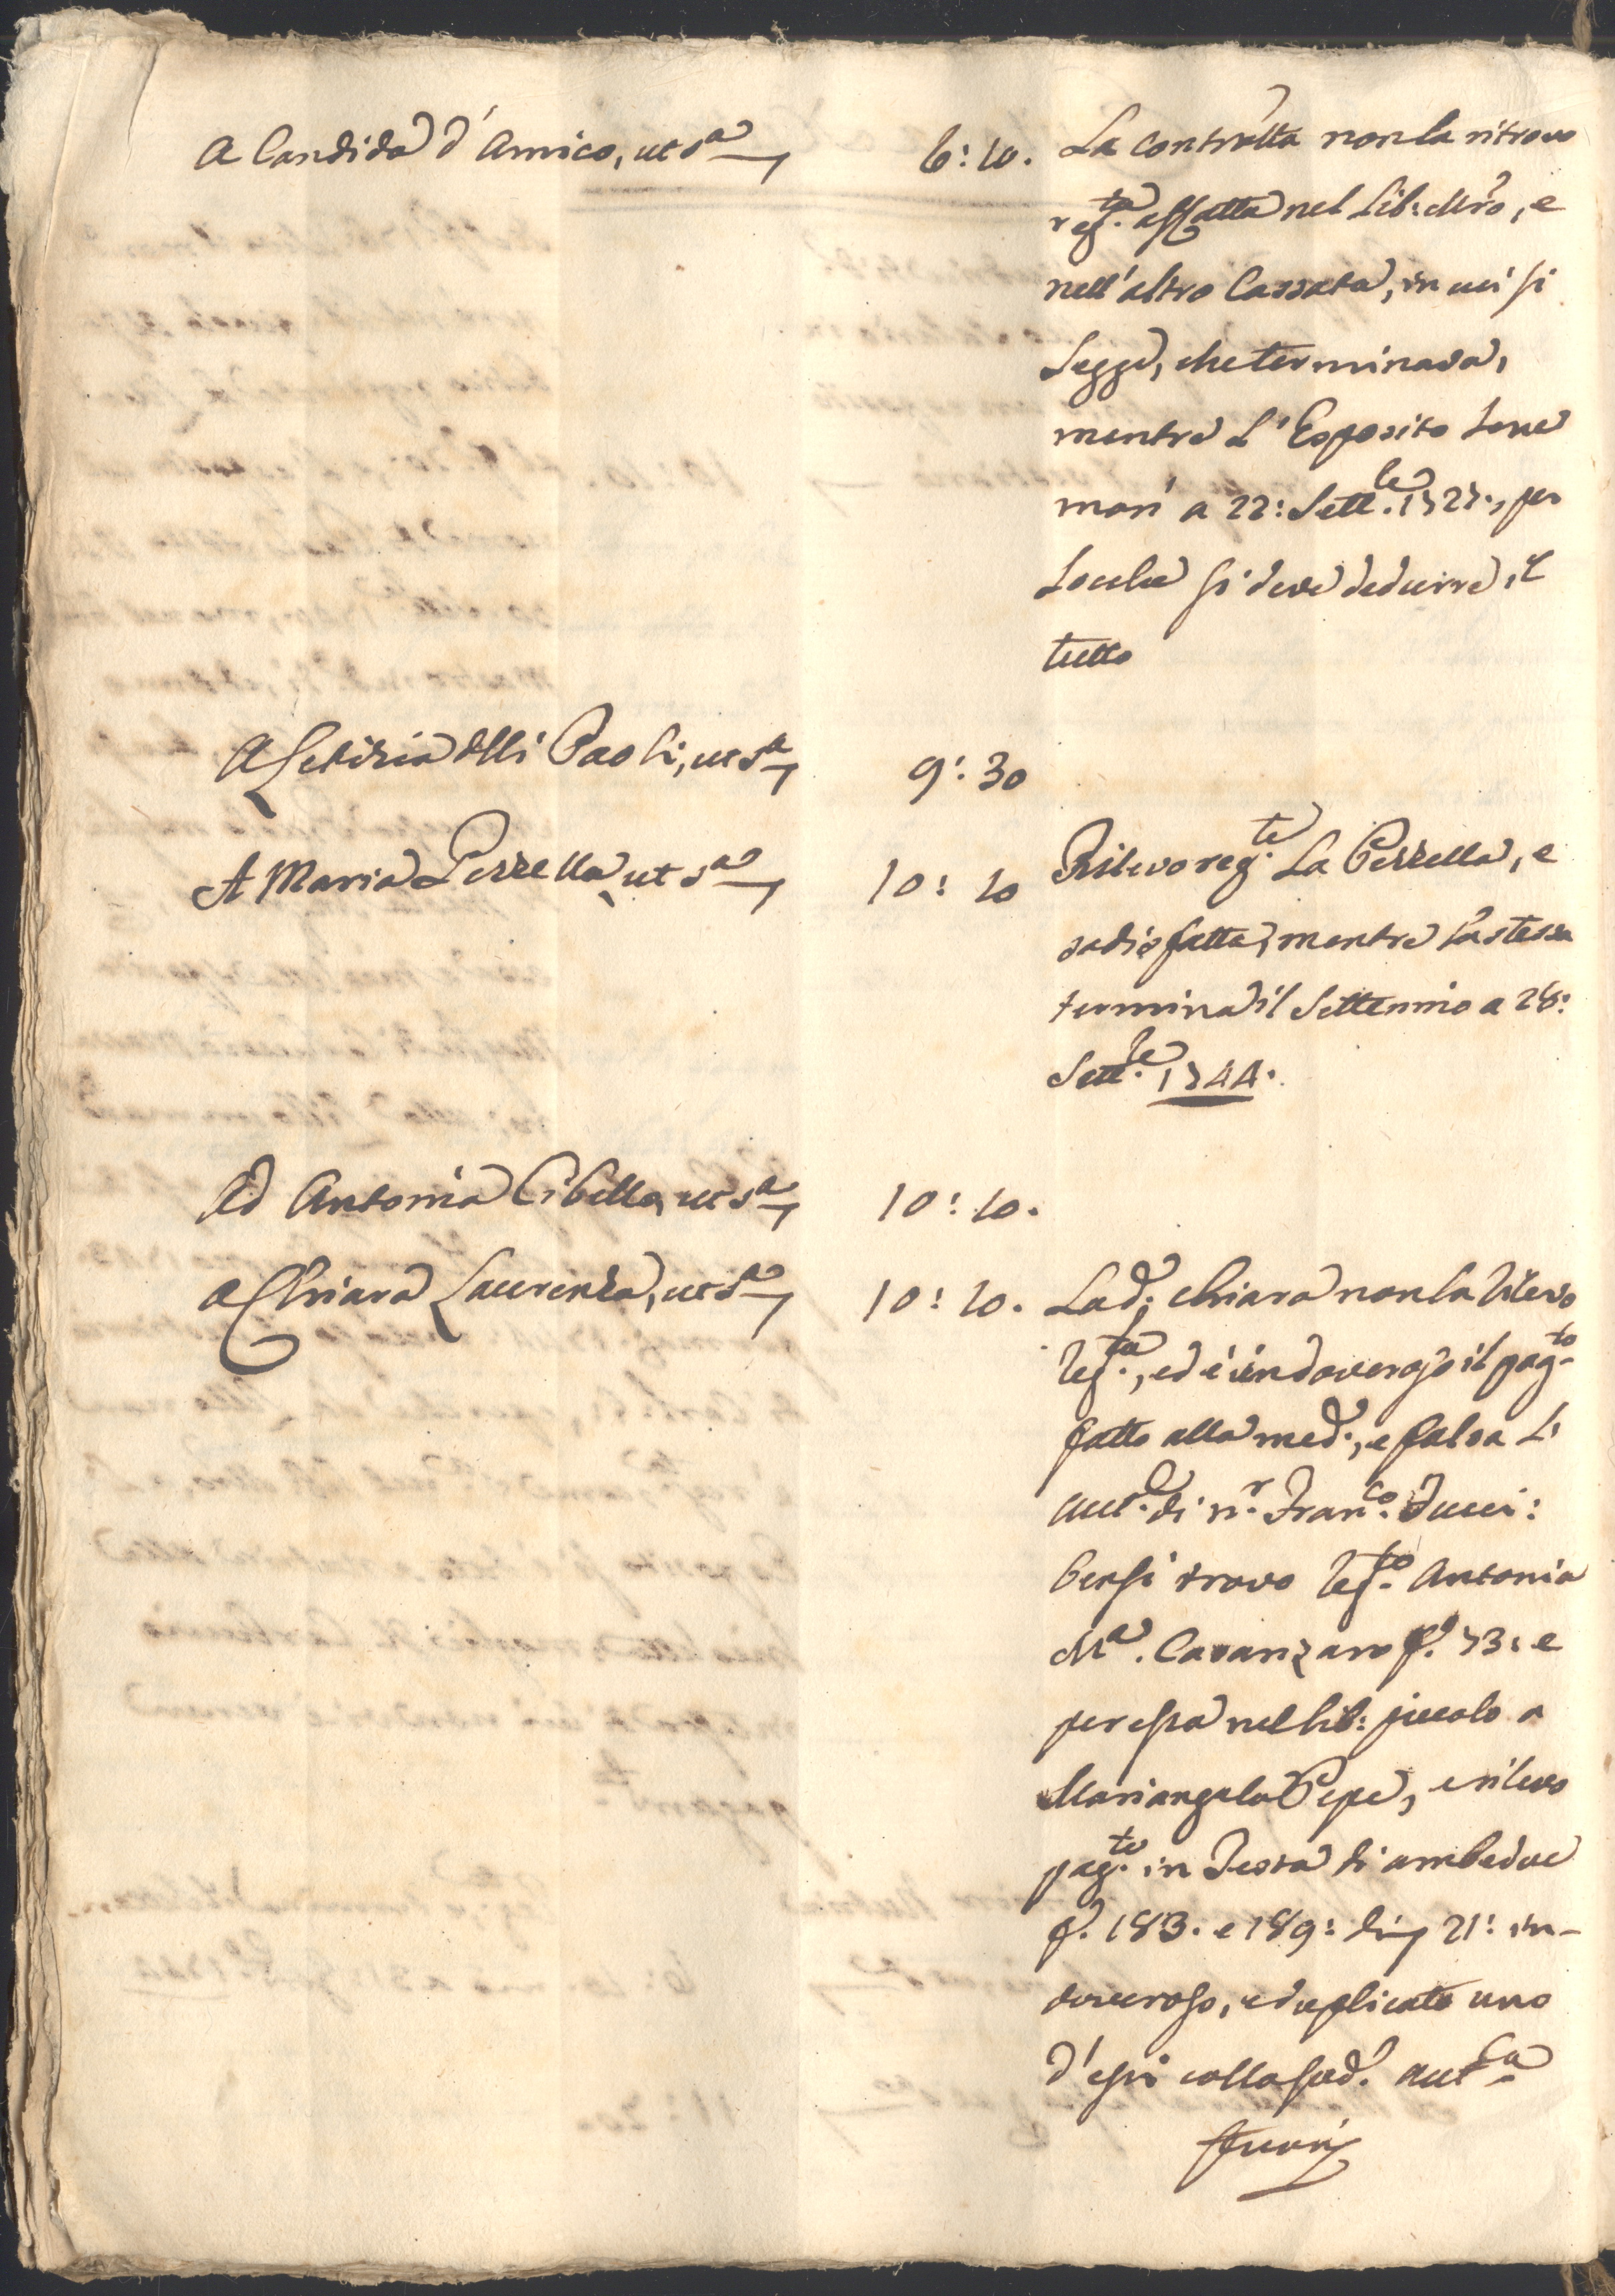 A Candida d'Amico, ut s.ª 6: 10. La contr.tta non la ritrovo
reg.ta affatta nel Lib: Mro, e
nell'altro Cassata, in cui si
Legge, che terminava,
mentre L'Esposito
morì a 22: Sett.le 1727., per
Locche si deve dedurre, il
tutto
A Letizia delli Paoli, ut s.ª 9: 30
A Maria Perrella, ut s.ª 10: 10 Rilevo reg.te La Perrella, e
sadisfatta, mentre la stessa
termina il Settennio a 28:
Sett.le 1744.
Ad Antonia Cibella, ut s.ª 10: 10.
A Chiara Laurenza, ut s.ª 10: 10. La d.ª Chiara non la rilevo
reg.ta, ed è indoveroso il pag.to
fatto alla med.ª, e falsa L'
aut.ca di n.r Fran.co Tucci:
bensi trovo reg.to Antonia
M.ª Catanzaro f.º 73: e
per essa nel lib: piccolo a
Mariangela Pepe, e rilevo
pag.to in Testa di ambedue
f. 183. e 189: 21: in-
doveroso, e duplicato uno
d'essi colla sud.ª aut.ca